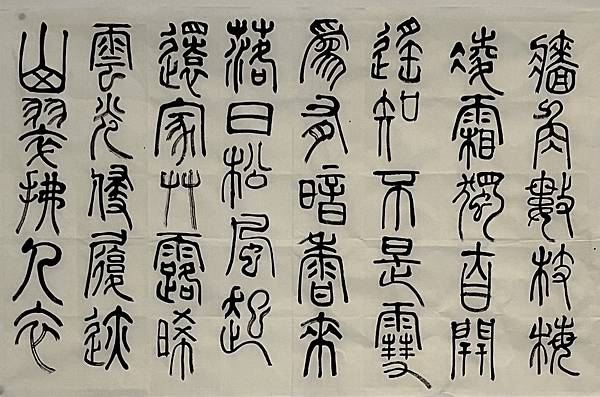 牆角數枝梅
凌霜獨自開
遙知不是雪
為有暗香來
落日松風起
還家艸露晞
雲光侵履迹
山翠拂人衣